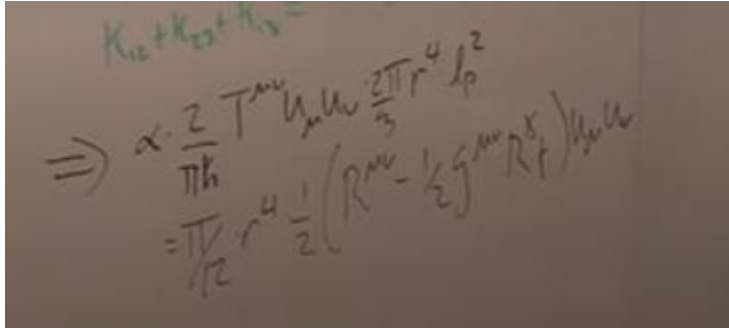 K₁₂+K₂₃+K₁₃=
⇒ α · 2/πħ T^μν u_μ u_ν 2π/3 r⁴ lp²
= π/12 · r⁴ 1/2 (R^μν - 1/2 g^μν R^γ_γ) u_μ u_ν